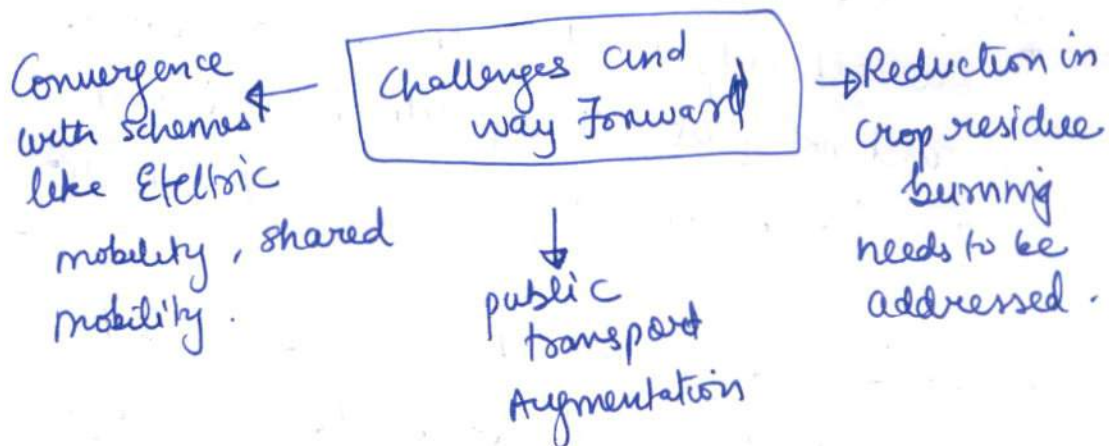 Challenges and
way Forward
Convergence
with schemes
like Eteltric
mobility, shared
mobility.
public
transport
Augmentation
Reduction in
crop residue
burning
needs to be
addressed.